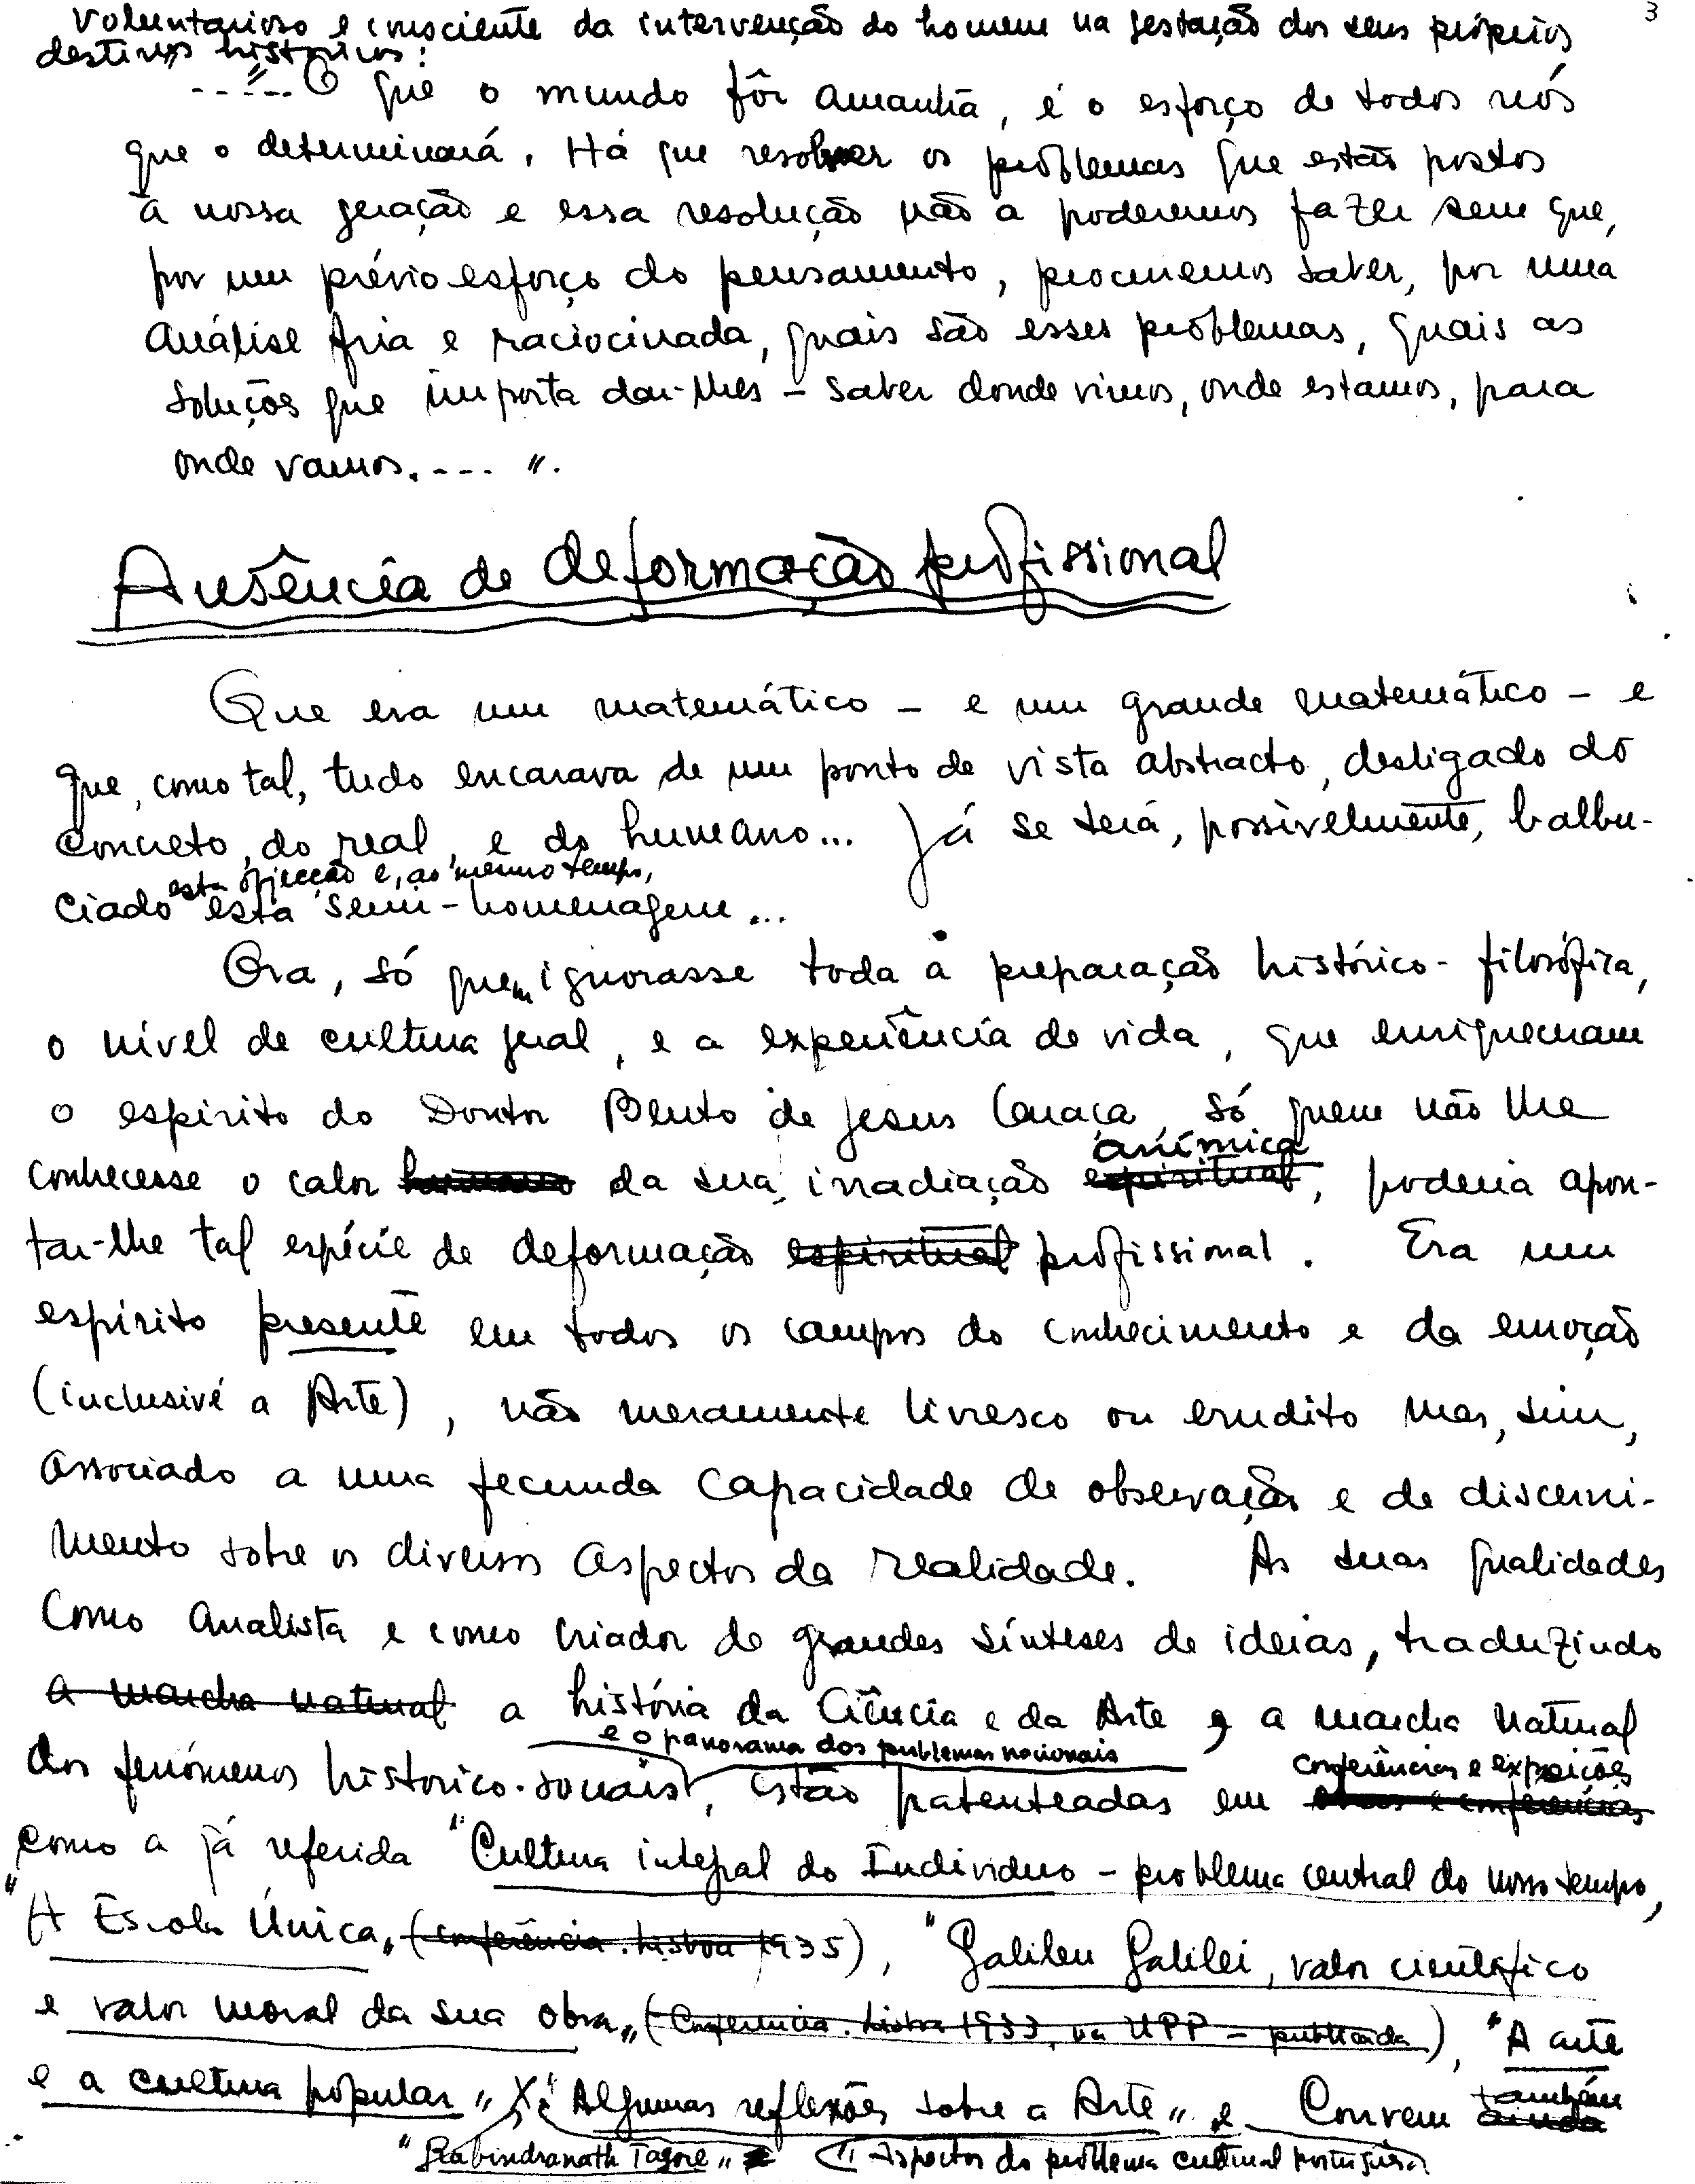 3
voluntarioso e consciente da intervenção do homem na gestação dos seus próprios
destinos históricos:
-----"O que o mundo fôr amanhã, é o esforço de todos nós
que o determinará. Há que resolver os problemas que estão postos
à nossa geração e essa resolução não a poderemos fazer sem que,
por um prévio esforço do pensamento, procuremos saber, por uma
análise fria e raciocinada, quais são esses problemas, quais as
soluções que importa dar-lhes – saber donde vimos, onde estamos, para
onde vamos.---".
Ausência de deformação profissional
Que era um matemático – e um grande matemático – e
que, como tal, tudo encarava de um ponto de vista abstracto, desligado do
concreto, do real, e do humano... Já se terá, possìvelmente, balbu-
esta objecção e, ao mesmo tempo,
ciado esta semi-homenagem...
Ora, só quem ignorasse toda a preparação histórico-filosófica,
o nível de cultura geral, e a experiência de vida, que enriqueceram
o espírito do Doutor Bento de Jesus Caraça, só quem não lhe
anímica
conhecesse o calor humano da sua irradiação espiritual, poderia apon-
tar-lhe tal espécie de deformação espiritual profissional. Era um
espírito presente em todos os campos do conhecimento e da emoção
(inclusivé a Arte), não meramente livresco ou erudito mas, sim,
associado a uma fecunda capacidade de observação e de discerni-
mento sobre os diversos aspectos da realidade. As suas qualidades
como analista e como criador de grandes sínteses de ideias, traduzindo
a marcha natural a história da Ciência e da Arte, a marcha natural
e o panorama dos problemas nacionais
conferências e exposições
dos fenómenos histórico-sociais, estão patenteadas em obras e conferências
como a já referida "Cultura integral do Indivíduo – problema central do nosso tempo,
"A Escola Única" (conferência. Lisboa 1935), "Galileu Galilei, valor científico
e valor moral da sua obra" (Conferência. Lisboa 1933, na UPP – publicada), "A arte
também
e a cultura popular" "Algumas reflexões sobre a Arte" e Convem ainda
"Rabindranath Tagore" "Aspectos do problema cultural português"